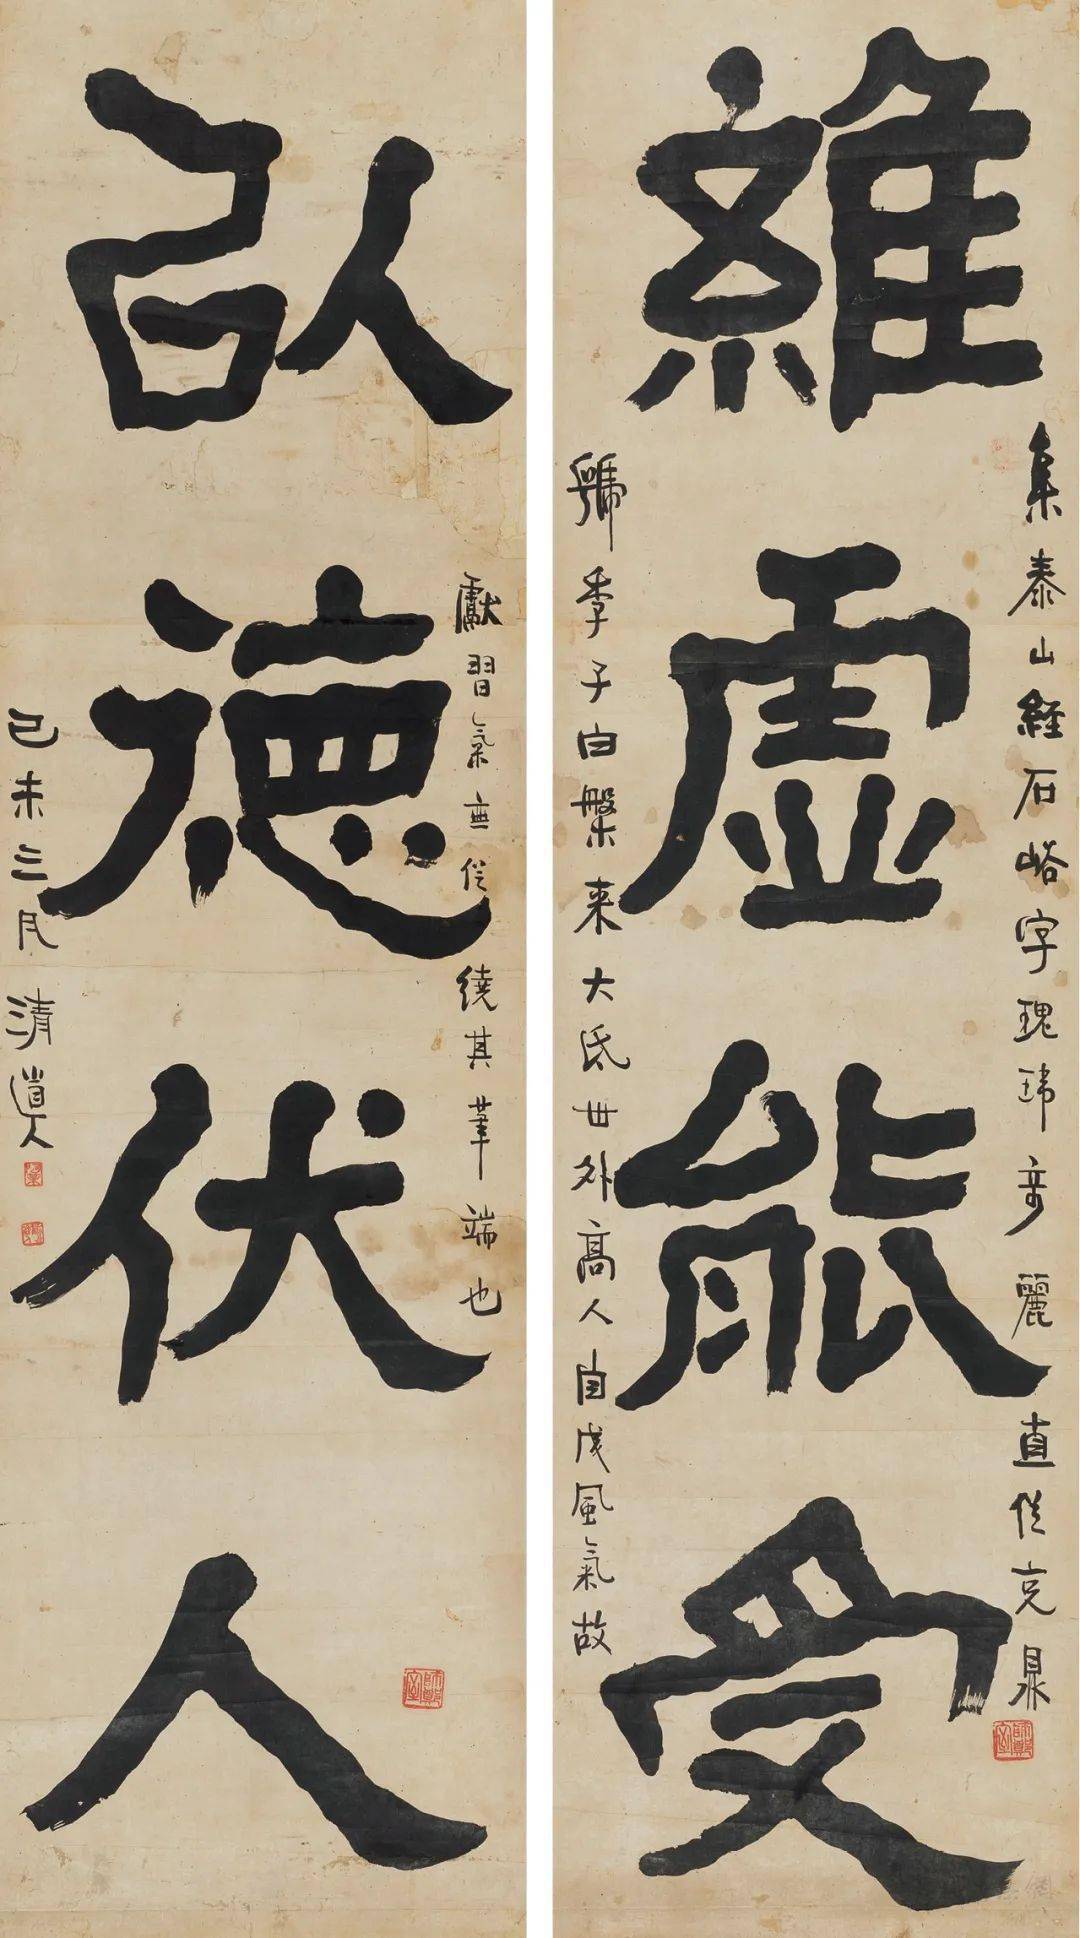 維虛能受
集泰山經石峪字瑰瑋奇麗直從克鼎
虢季子白槃来大氐世外高人自成風氣故
以德伏人
獻習氣無從繞其筆端也
己未三月清道人